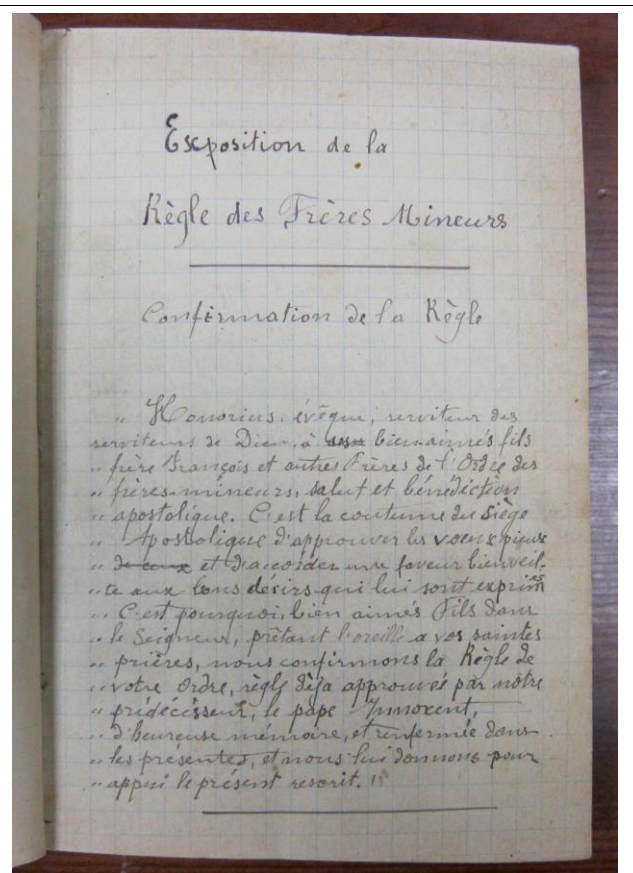 Exposition de la
Règle des Frères Mineurs
Confirmation de la Règle
" Honorius, évêque, serviteur des
serviteurs de Dieu, à bien-aimés fils
" frère François et autres Frères de l'Ordre des
" frères-mineurs, salut et bénédiction
" apostolique. C'est la coutume du Siège
" Apostolique d'approuver les voeux pieux
" de ceux et d'accorder une faveur bienveil-
" te aux bons désirs qui lui sont exprimés
" C'est pourquoi, bien aimés Fils dans
" le Seigneur, prêtant l'oreille a vos saintes
" prières, nous confirmons la Règle de
" votre Ordre, règle déja approuvée par nôtre
" prédécésseur, le pape Innocent,
" d'heureuse mémoire, et renfermée dans
" les présentes, et nous lui donnons pour
" appui le présent rescrit. "